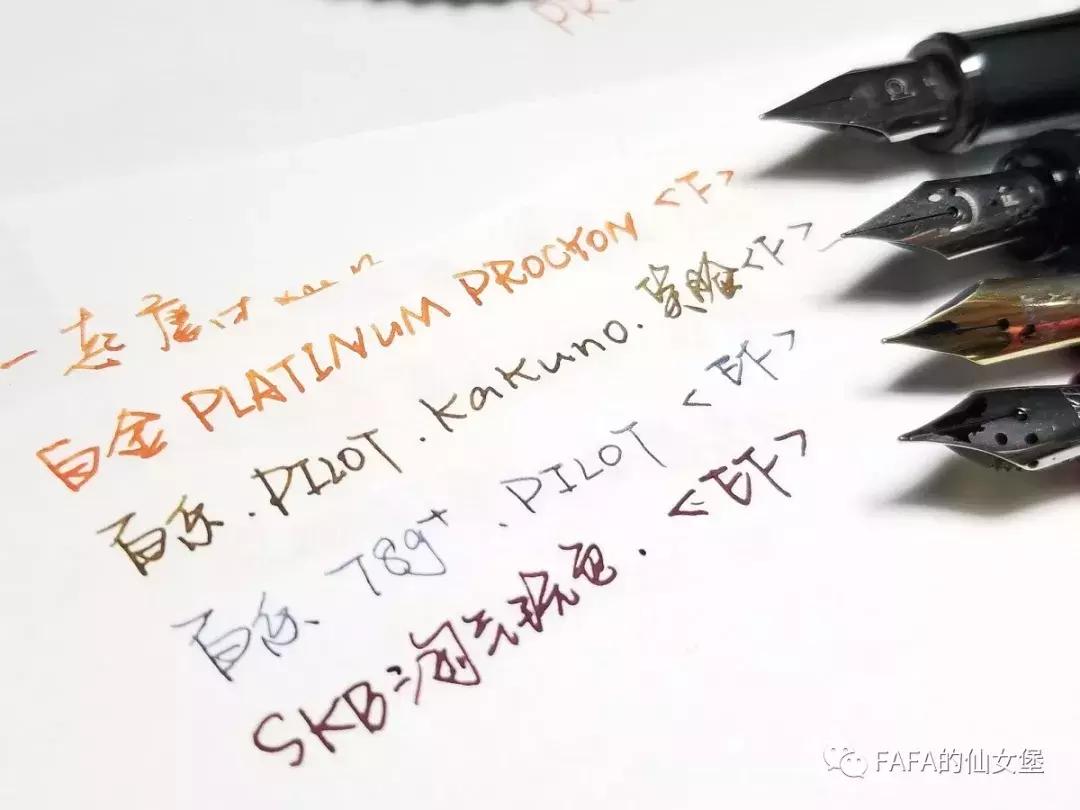 一起磨
白金 PLATINUM PROCYON <F>
百乐.PILOT.Kakuno.笑脸<F>
百乐 78g+.PILOT <EF>
SKB:淘气包.<EF>
FAFA的仙女堡